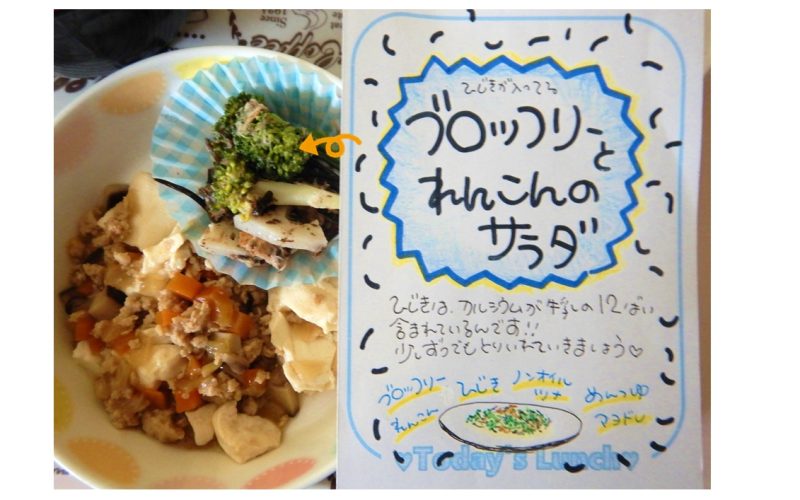 ひじきが入ってる
ブロッコリーと
れんこんの
サラダ
ひじきは、カルシウムが牛乳の12ばい
含まれているんです!!
少しずつでもとりいれていきましょう♡
ブロッコリー ひじき ノンオイルツナ めんつゆ
れんこん マヨドレ
♡Today's Lunch♡
Since 1991
Coffee